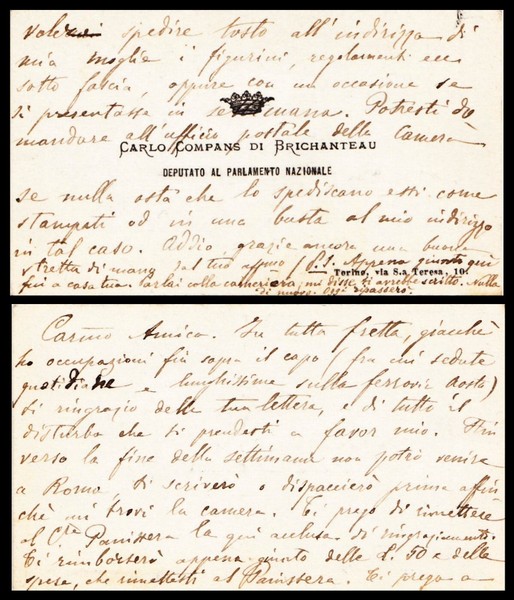 voler spedire tosto all'indirizzo di
mia moglie i figurini, regolamenti ecc
sotto fascia, oppure con una occasione se
si presentasse in settimana. Potresti do
mandare all'ufficio postale della Camera
CARLO COMPANS DI BRICHANTEAU
DEPUTATO AL PARLAMENTO NAZIONALE
se nulla osta che lo spediscano essi come
stampati od in una busta al mio indirizzo
in tal caso. Addio, grazie ancora una buona
stretta di mano dal tuo affmo P.S. Appena giunto qui
Torino, via S.a Teresa, 10.
fui a casa tua parlai colla cameriera, mi disse ti avrebbe scritto. Nulla
di nuovo. Oggi ripasserò.
Carmo Amico. In tutta fretta, giacchè
ho occupazioni fin sopra il capo (fra cui sedute
quotidiane e lunghissime sulla ferrovia Aosta)
ti ringrazio della tua lettera, e di tutto il
disturbo che ti prendesti a favor mio. Fin
verso la fine della settimana non potrò venire
a Roma ti scriverò o dispaccierò prima affin
chè mi trovi la camera. Ti prego di rimettere
al Cte Panissera la qui acclusa di ringraziamento.
Ti rimborserò appena giunto delle L. 50 e della
spesa, che rimettesti al Panissera. Ti prego a